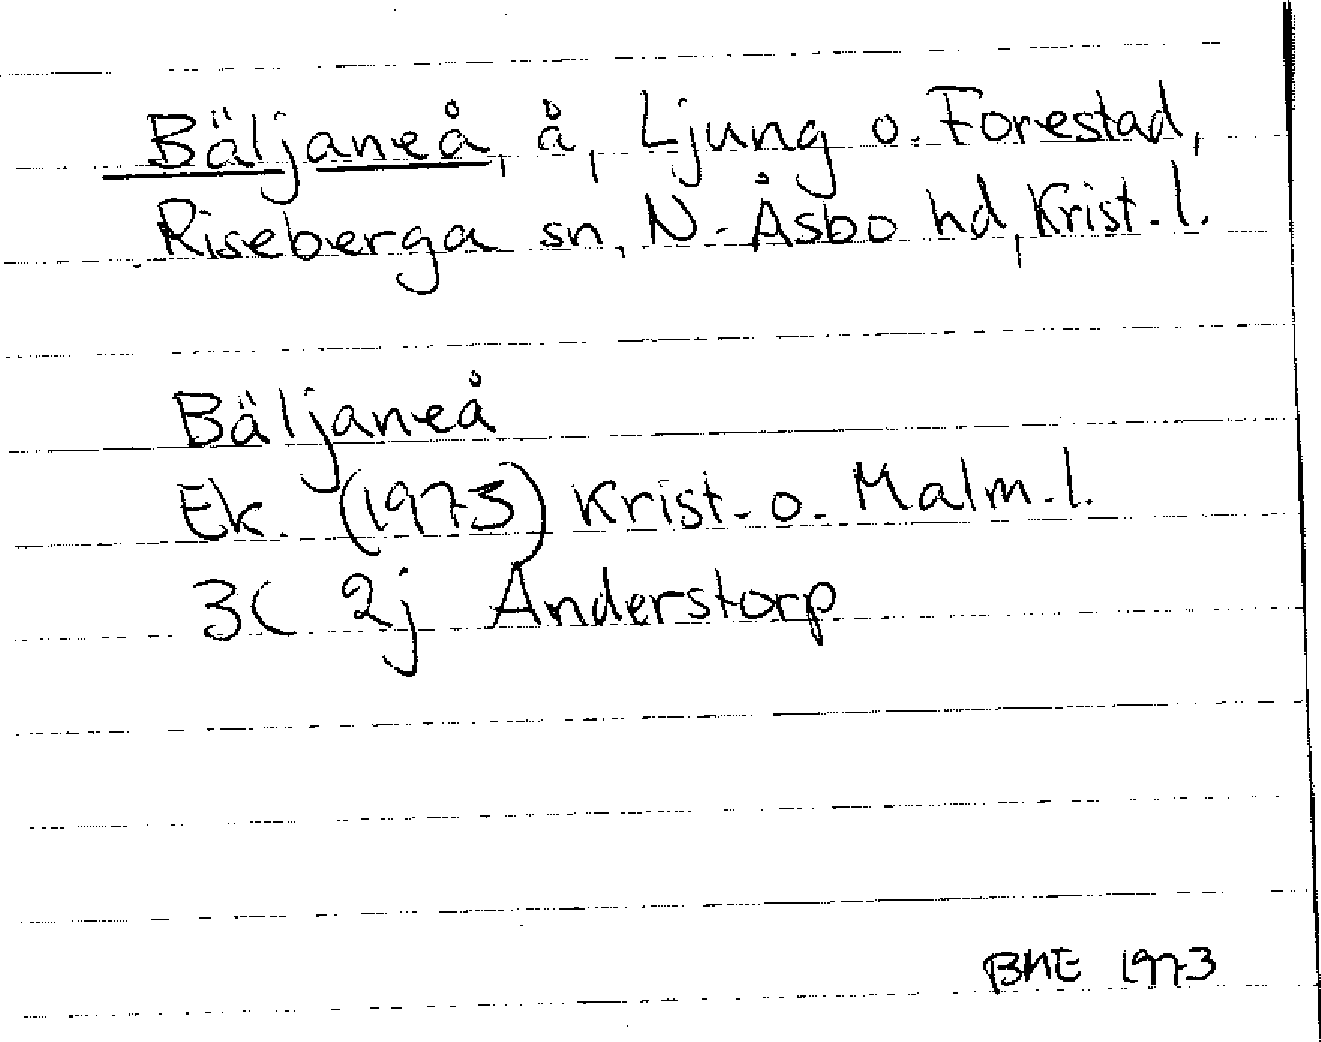 Bäljaneå, å, Ljung o. Forestad,
Riseberga sn, N. Åsbo hd, Krist. l.
Bäljaneå
Ek. (1975) Krist. o. Malm. l.
3C 2j Anderstorp
1973